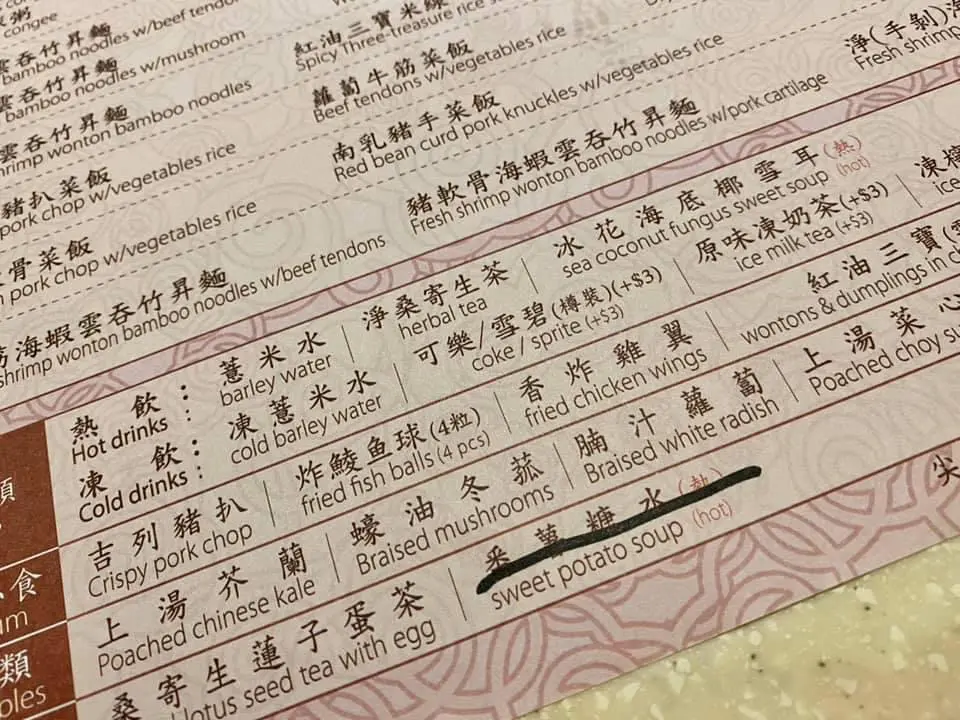 congee
雲吞竹昇麵
bamboo noodles w/beef tendon
雲吞竹昇麵
bamboo noodles w/mushroom
雲吞竹昇麵
shrimp wonton bamboo noodles
豬扒菜飯
pork chop w/vegetables rice
骨菜飯
pork chop w/vegetables rice
海蝦雲吞竹昇麵
shrimp wonton bamboo noodles w/beef tendons
紅油三寶米線
Spicy Three-treasure rice
蘿蔔牛筋菜飯
Beef tendons w/vegetables rice
南乳豬手菜飯
Red bean curd pork knuckles w/vegetables rice
豬軟骨海蝦雲吞竹昇麵
Fresh shrimp wonton bamboo noodles w/pork cartilage
淨(手剝)
Fresh shrimp
熱飲: 薏米水 淨桑寄生茶 冰花海底椰雪耳(熱)
Hot drinks: barley water herbal tea sea coconut fungus sweet soup (hot)
凍飲: 凍薏米水 可樂/雪碧(樽裝)(+$3) 原味凍奶茶(+$3) 凍檸
Cold drinks: cold barley water coke / sprite (+$3) ice milk tea (+$3) ice
吉列豬扒 炸鯪鱼球(4粒) 香炸雞翼 紅油三寶
Crispy pork chop fried fish balls (4 pcs) fried chicken wings wontons & dumplings in
上湯芥蘭 蠔油冬菰 腩汁蘿蔔 上湯菜心
Poached chinese kale Braised mushrooms Braised white radish Poached choy
桑寄生蓮子蛋茶 糖水(熱) 尖
lotus seed tea with egg sweet potato soup (hot)
食
類